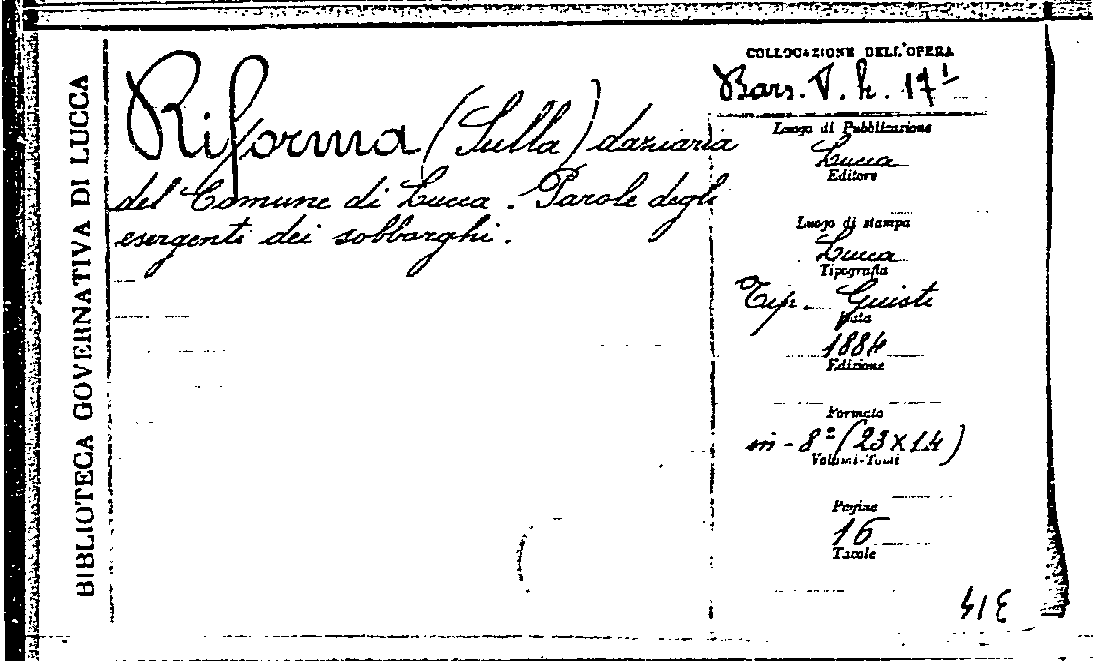 BIBLIOTECA GOVERNATIVA DI LUCCA
Riforma (Sulla) daziaria
del Comune di Lucca. Parole degli
esergenti dei sobborghi.
COLLOCAZIONE DELL'OPERA
Bars. V. h. 17¹
Luogo di Pubblicazione
Lucca
Editore
Luogo di stampa
Lucca
Tipografia
Tip. Giusti
Data
1884
Edizione
Formato
in-8º (23×14)
Volumi-Tomi
Pagine
16
Tavole